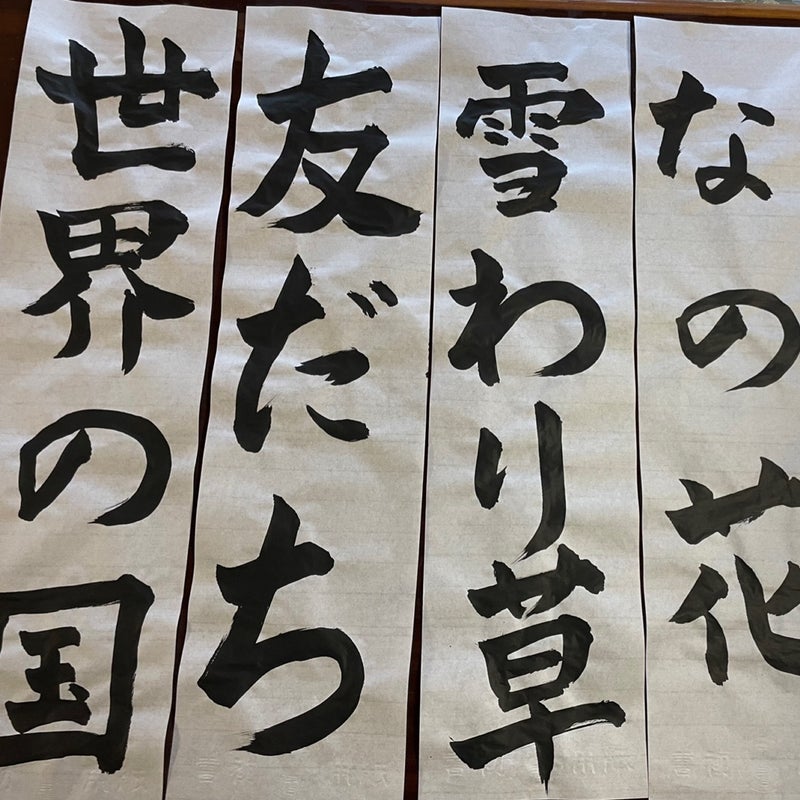 なの花
雪わり草
友だち
世界の国